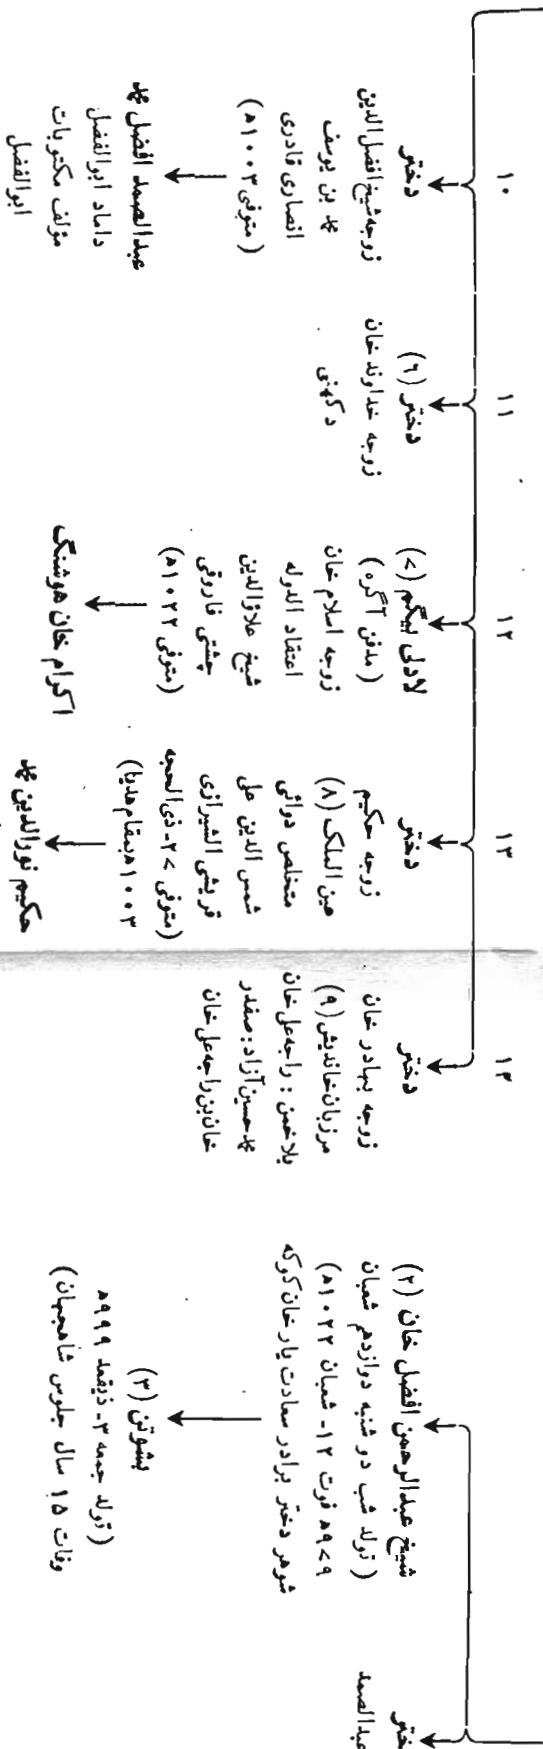 ۱۰
دختر
زوجہ شیخ افضل الدین
محمد بن یوسف
انصاری قادری
(متوفی ۱۰۰۳ھ)
عبدالصمد افضل محمد
داماد ابوالفضل
مؤلف مکتوبات
ابوالفضل
۱۱
دختر (۶)
زوجہ خداوند خان
دکھنی
۱۲
لاڈلی بیگم (۷)
(مدفن آگرہ)
زوجہ اسلام خان
اعتقاد الدولہ
شیخ علاؤالدین
چشتی فاروقی
(متوفی ۱۰۲۲ھ)
اکرام خان ھوشنگ
۱۳
دختر
زوجہ حکیم
عین الملک (۸)
متخلص دوائی
شمس الدین علی
قریشی الشیرازی
(متوفی ۲۷-ذی الحجہ
۱۰۰۳ھ بمقام ھنڈیا)
حکیم نورالدین محمد
۱۴
دختر
زوجہ بہادر خان
مرزبان خاندیش (۹)
بلاخمن : راجہ علی خان
محمد حسین آزاد : صفدر
خان بن راجہ علی خان
شیخ عبدالرحمن افضل خان (۲)
(تولد شب دو شنبہ دوازدھم شعبان
۹۷۹ھ فوت ۱۲- شعبان ۱۰۲۲ھ)
شوھر دختر برادر سعادت یار خان کوکہ
بشوتن (۳)
(تولد جمعہ ۳- ذیقعد ۹۹۹ھ
وفات ۱۵ سال جلوس شاھجہان)
ختر
عبدالصمد